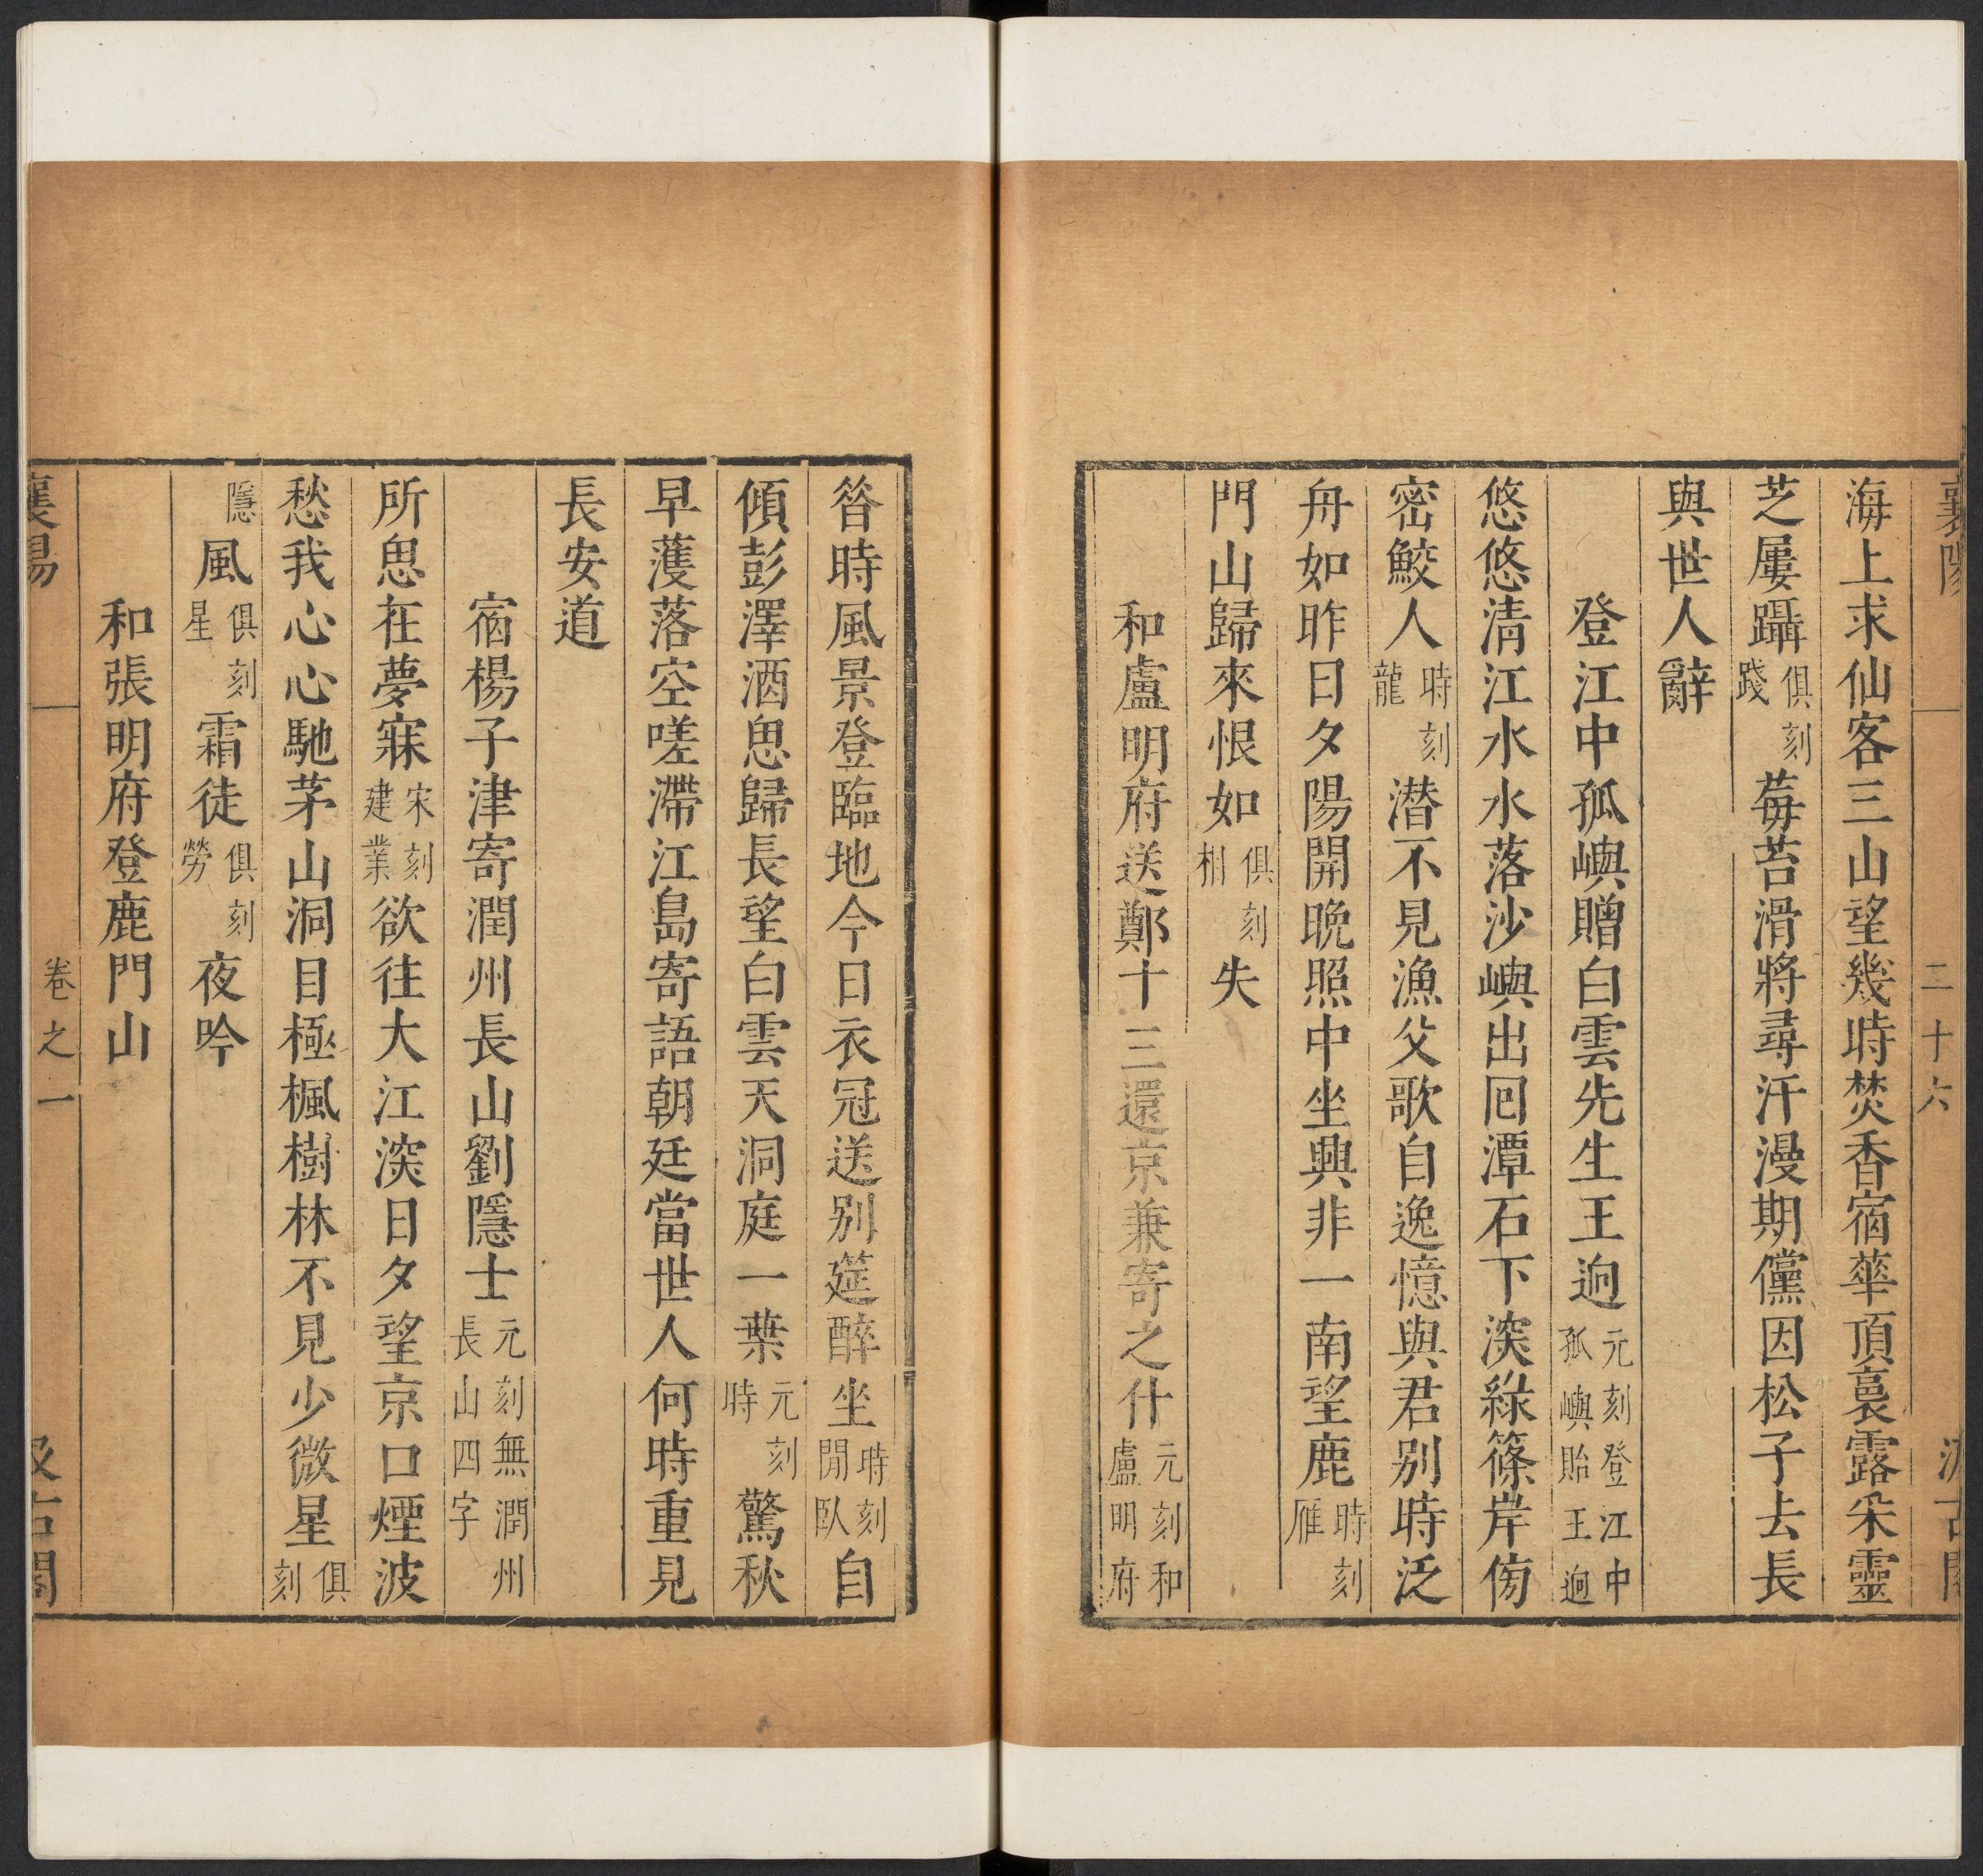 襄陽 二十六 汲古閣
海上求仙客三山望幾時焚香宿華頂裛露采靈
芝屢躡俱刻踐莓苔滑將尋汗漫期儻因松子去長
與世人辭
登江中孤嶼贈白雲先生王迥元刻登江中孤嶼貽王迥
悠悠清江水水落沙嶼出回潭石下深綠篠岸傍
密鮫人時刻龍潛不見漁父歌自逸憶與君別時泛
舟如昨日夕陽開晚照中坐興非一南望鹿時刻雁
門山歸來恨如俱刻相失
和盧明府送鄭十三還京兼寄之什元刻和盧明府
昝時風景登臨地今日衣冠送別筵醉坐時刻閒臥自
傾彭澤酒思歸長望白雲天洞庭一葉元刻時驚秋
早蒦落空嗟滯江島寄語朝廷當世人何時重見
長安道
宿楊子津寄潤州長山劉隱士元刻無潤州長山四字
所思在夢寐宋刻建業欲往大江深日夕望京口煙波
愁我心心馳茅山洞目極楓樹林不見少微星俱刻
隱風俱刻星霜徒俱刻勞夜吟
和張明府登鹿門山
襄陽 卷之一 汲古閣